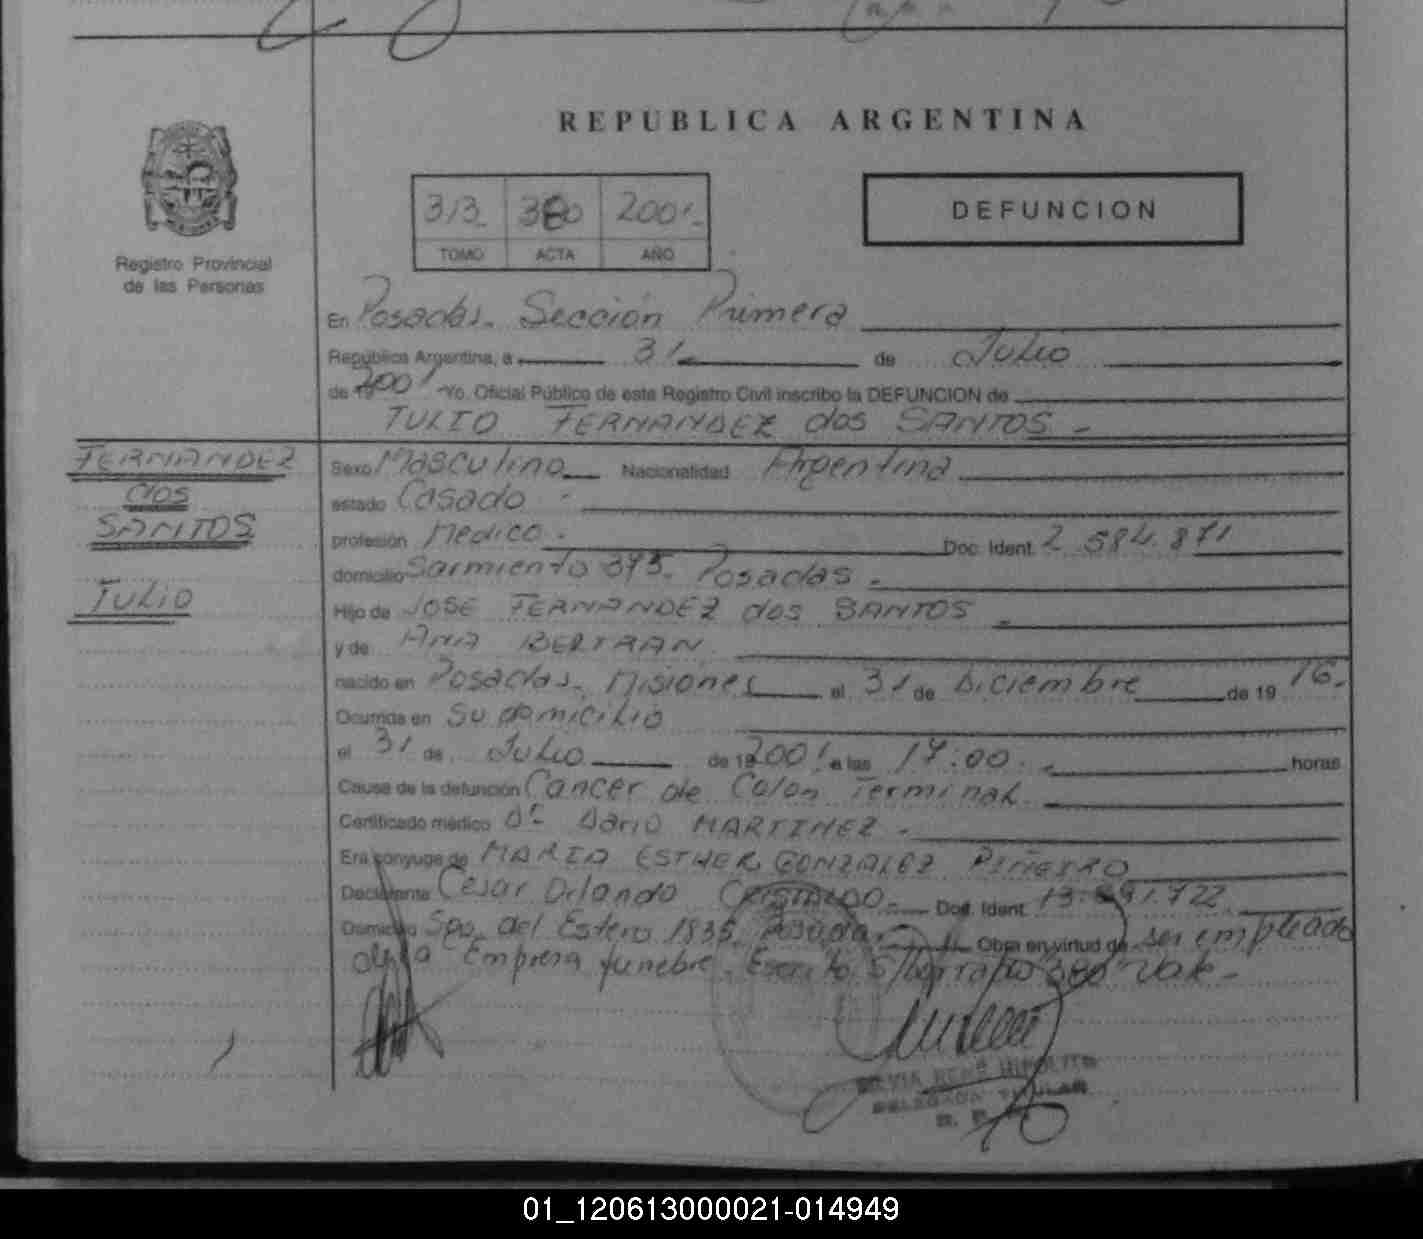 REPUBLICA ARGENTINA
Registro Provincial
de las Personas
313 380 2001
TOMO ACTA AÑO
DEFUNCION
En Posadas. Sección Primera
República Argentina, a 31 de Julio
de 2001 Yo. Oficial Público de este Registro Civil inscribo la DEFUNCION de
TULIO FERNANDEZ dos SANTOS
FERNANDEZ
dos
SANTOS
TULIO
Sexo Masculino Nacionalidad Argentina
estado Casado
profesión Medico. Doc. Ident. 2.584.871
domicilio Sarmiento 375. Posadas.
Hijo de JOSE FERNANDEZ dos SANTOS
y de ANA BERTRAN
nacido en Posadas. Misiones el 31 de Diciembre de 19 16.
Ocurrida en Su domicilio
el 31 de Julio de 19 2001 a las 17:00. horas
Causa de la defunción Cancer de Colon Terminal
Certificado médico Dr Dario MARTINEZ.
Era conyuge de MARIA ESTHER GONZALEZ PIÑEIRO
Declarante Cesar Orlando Doc. Ident. 13. 722
Domicilio Sgo. del Estero 1835. Posadas Obra en virtud de ser empleado
de la Empresa funebre. Escrito S/ 380 Vale.
SILVIA RENE HIPOLITO
DELEGADA TITULAR
01_120613000021-014949